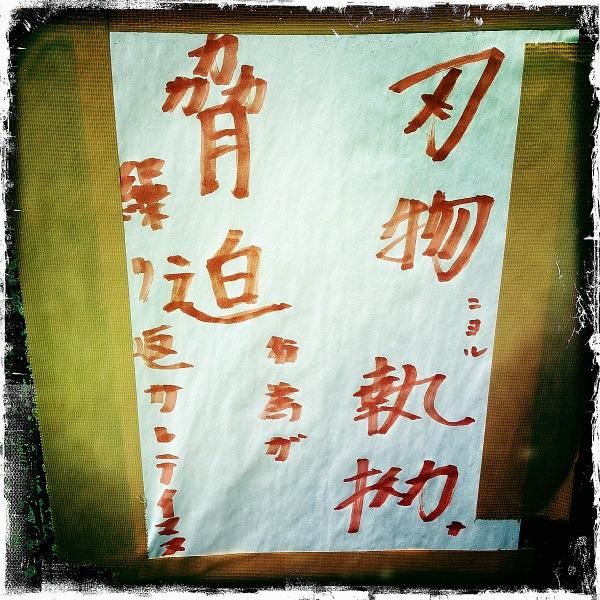 刃物ニヨル執拗ナ
脅迫行為ガ
繰リ返サレテイマス